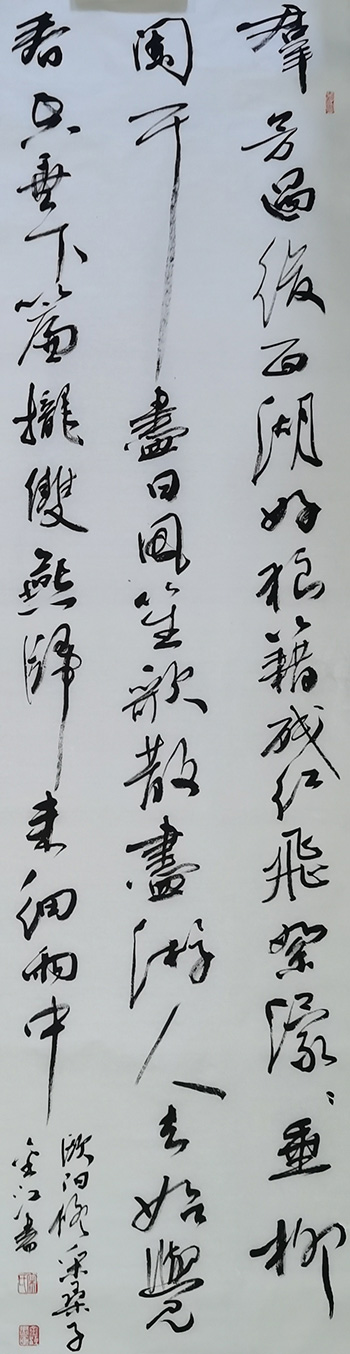 羣芳過後西湖好狼籍残红飛絮濛〻垂柳
闌干盡日風笙歌散盡游人去始覺
春空垂下簾攏雙燕歸来細雨中
歐陽修采桑子
金江書